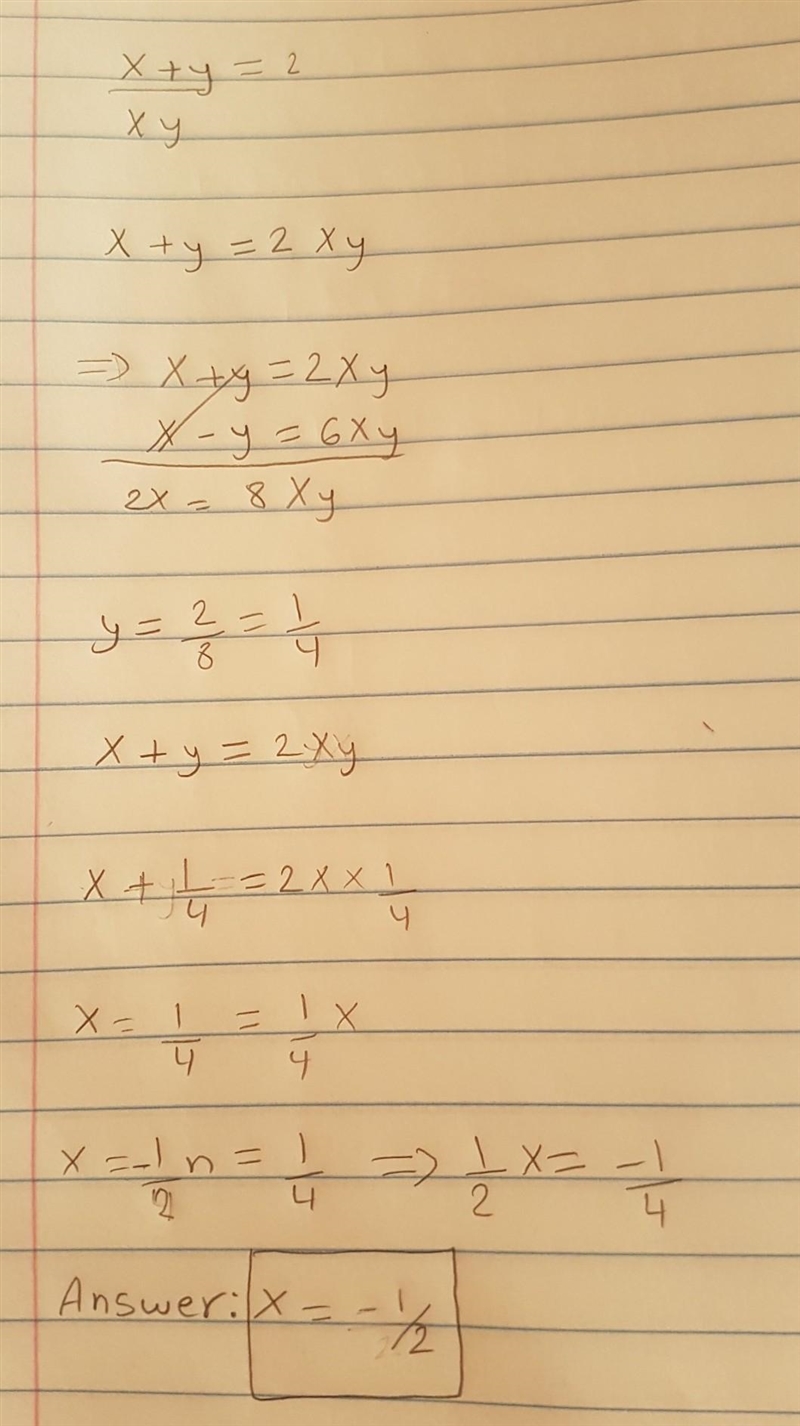 x + y = 2
xy
x + y = 2 xy
⇒ x + y = 2xy
x - y = 6xy
2x = 8xy
y = 2/8 = 1/4
x + y = 2xy
x + 1/4 = 2x × 1/4
x = 1/4 = 1/4 x
x = -1/2 n = 1/4 ⇒ 1/2 x = -1/4
Answer: x = -1/2